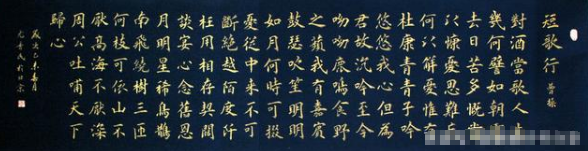 短歌行 曹操
對酒當歌人生
幾何譬如朝露
去日苦多慨當
以慷憂思難忘
何以解憂惟有
杜康青青子衿
悠悠我心但為
君故沉吟至今
呦呦鹿鳴食野
之蘋我有嘉賓
鼓瑟吹笙明明
如月何時可掇
憂從中來不可
斷絕越陌度阡
枉用相存契闊
談宴心念舊恩
月明星稀烏鵲
南飛繞樹三匝
何枝可依山不
厭高海不厭深
周公吐哺天下
歸心